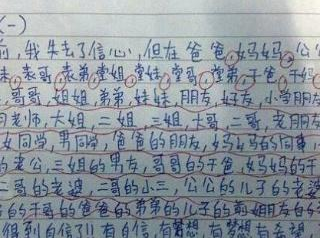 (一)
前,我失去了信心,但在爸爸,妈妈,公公
妹,表哥,表弟,堂姐,堂妹,堂哥,堂弟,干爸,干妈
,哥哥,姐姐,弟弟,妹妹,朋友,好友,小学朋友
老师,大姐,二姐,三姐,大哥,二哥,老朋友
女同学,男同学,爸爸的朋友,妈妈的同事
的老公,三姐的男友,哥哥的干爸,妈妈的干
二哥的老婆,二哥的小三,公公的儿子的老婆
的干哥的爸爸的弟弟的儿子的前姐朋友的
得到自信了!!有自信,有梦想,有梦想有希望